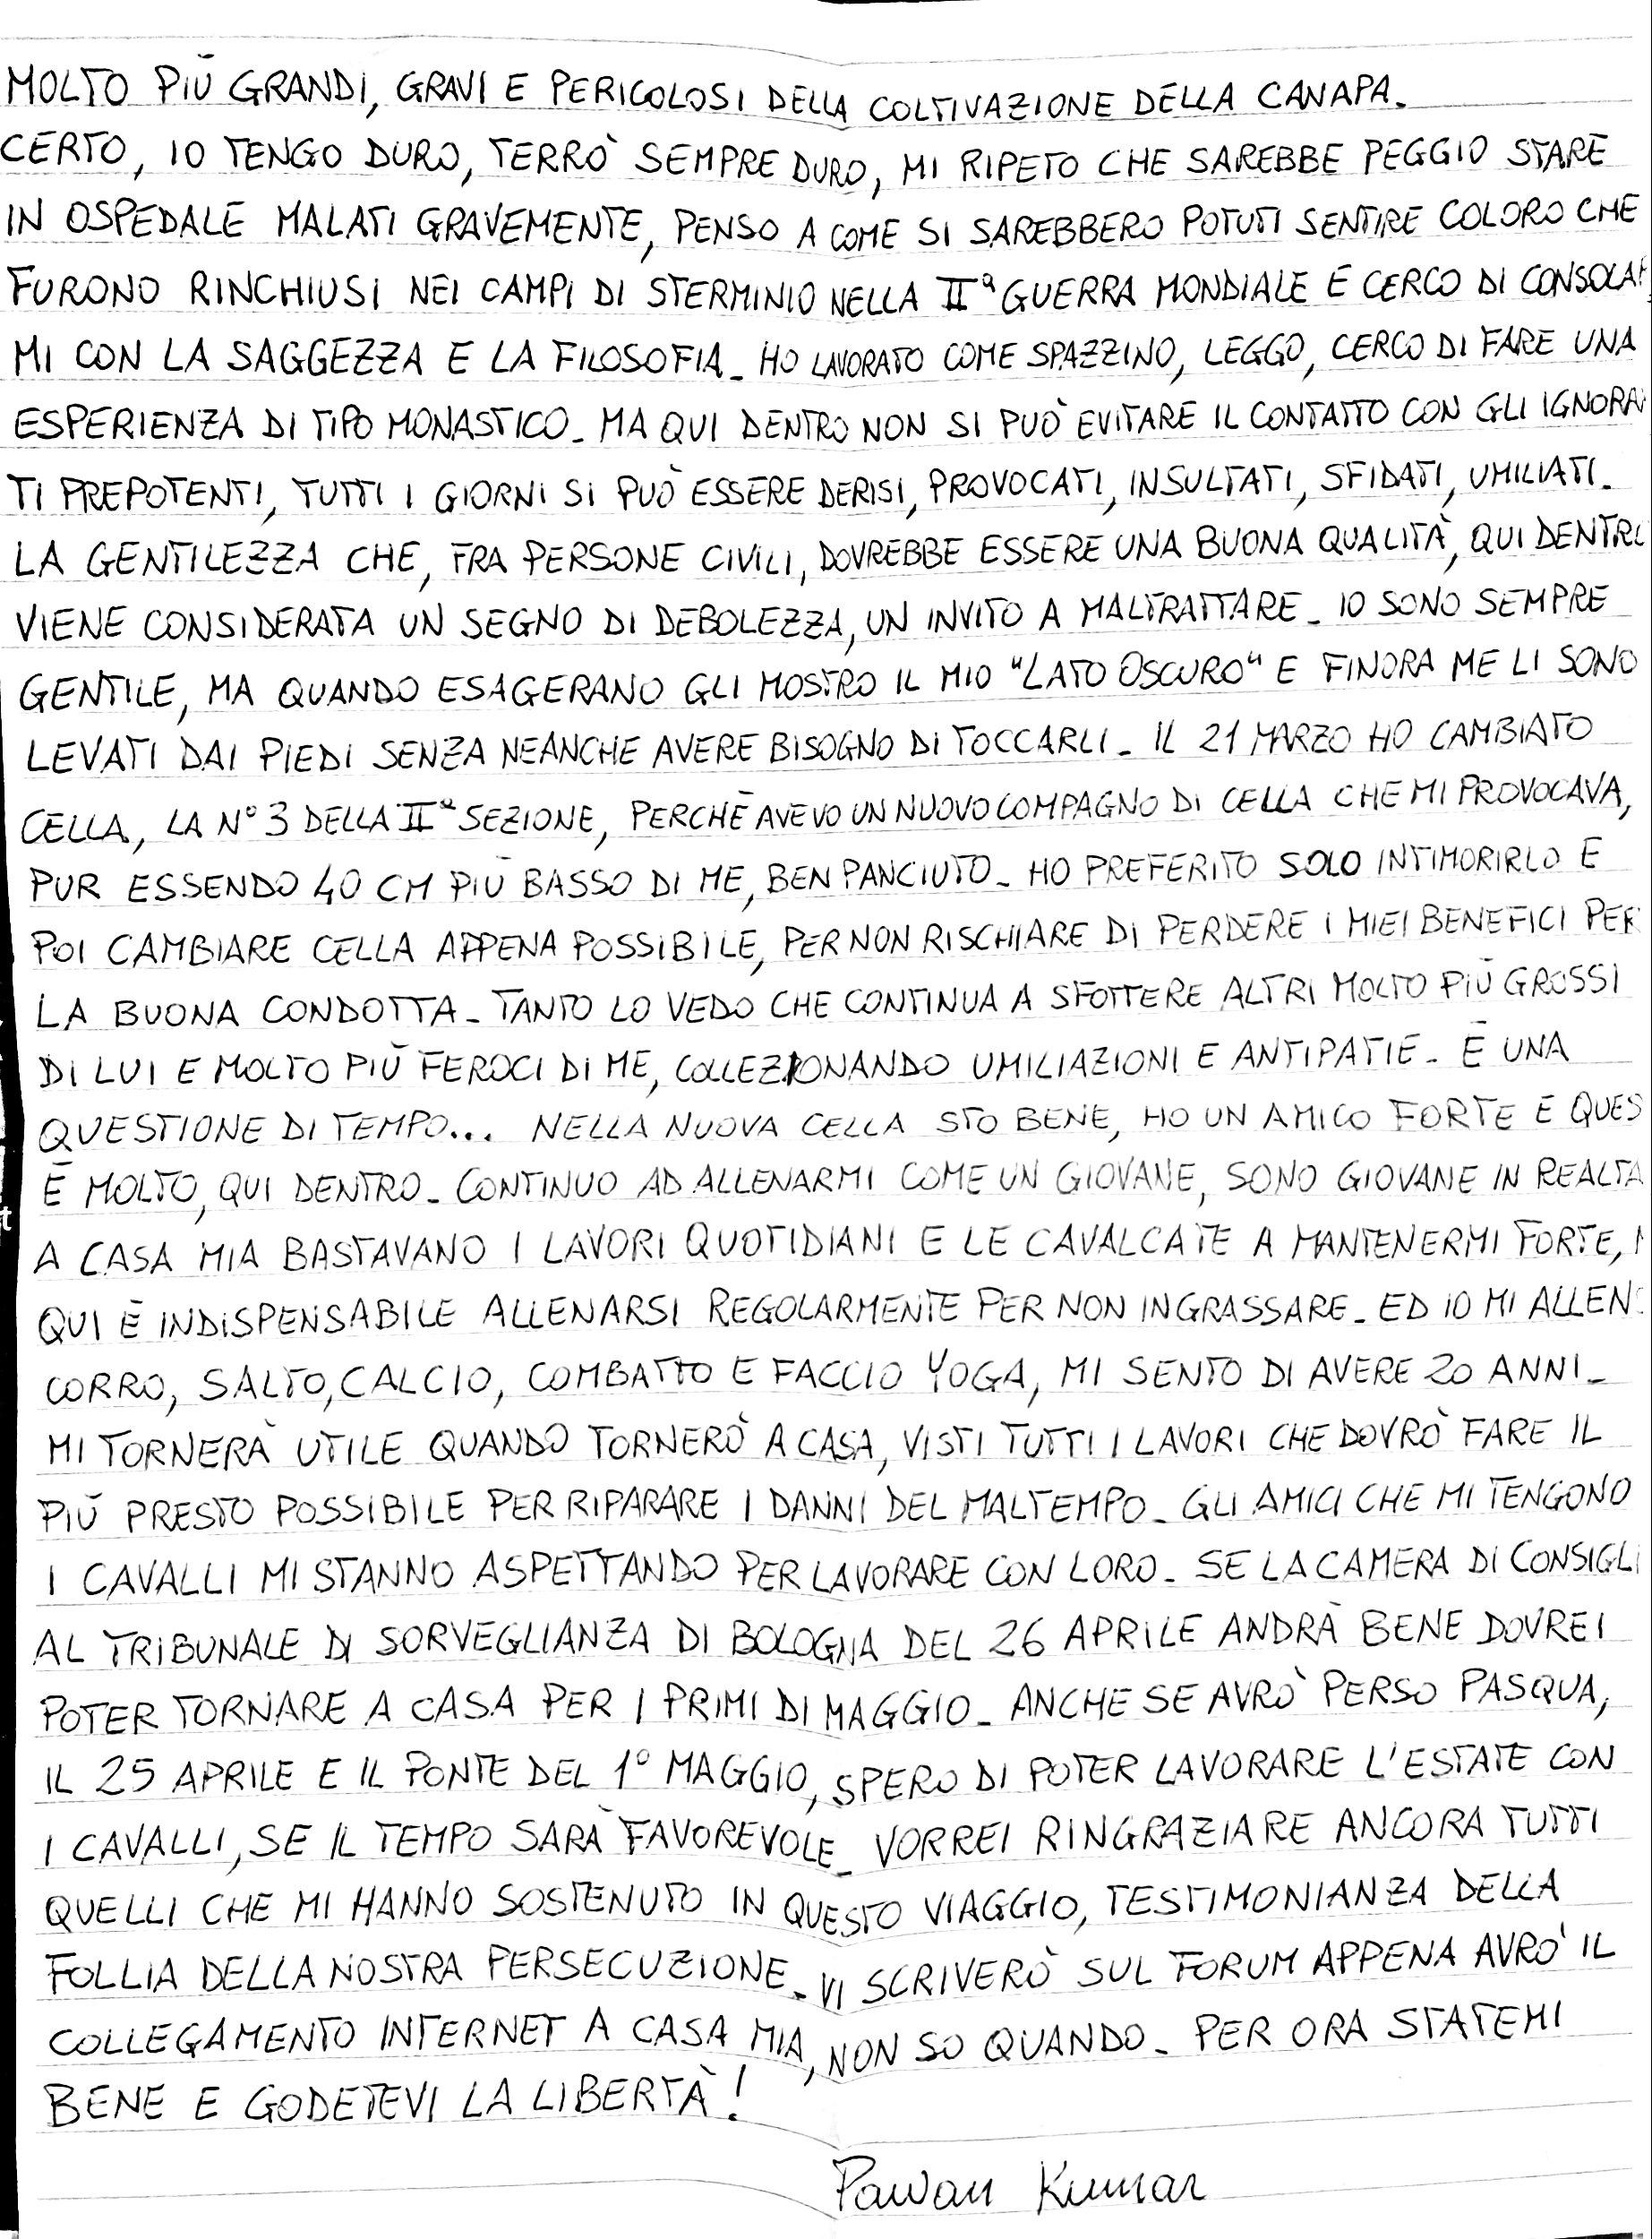 MOLTO PIÙ GRANDI, GRAVI E PERICOLOSI DELLA COLTIVAZIONE DELLA CANAPA.
CERTO, IO TENGO DURO, TERRÒ SEMPRE DURO, MI RIPETO CHE SAREBBE PEGGIO STARE
IN OSPEDALE MALATI GRAVEMENTE, PENSO A COME SI SAREBBERO POTUTI SENTIRE COLORO CHE
FURONO RINCHIUSI NEI CAMPI DI STERMINIO NELLA IIª GUERRA MONDIALE E CERCO DI CONSOLAR
MI CON LA SAGGEZZA E LA FILOSOFIA. HO LAVORATO COME SPAZZINO, LEGGO, CERCO DI FARE UNA
ESPERIENZA DI TIPO MONASTICO. MA QUI DENTRO NON SI PUÒ EVITARE IL CONTATTO CON GLI IGNORA
TI PREPOTENTI, TUTTI I GIORNI SI PUÒ ESSERE DERISI, PROVOCATI, INSULTATI, SFIDATI, UMILIATI.
LA GENTILEZZA CHE, FRA PERSONE CIVILI, DOVREBBE ESSERE UNA BUONA QUALITÀ, QUI DENTRO
VIENE CONSIDERATA UN SEGNO DI DEBOLEZZA, UN INVITO A MALTRATTARE. IO SONO SEMPRE
GENTILE, MA QUANDO ESAGERANO GLI MOSTRO IL MIO "LATO OSCURO" E FINORA ME LI SONO
LEVATI DAI PIEDI SENZA NEANCHE AVERE BISOGNO DI TOCCARLI. IL 21 MARZO HO CAMBIATO
CELLA, LA N° 3 DELLA IIª SEZIONE, PERCHÉ AVEVO UN NUOVO COMPAGNO DI CELLA CHE MI PROVOCAVA,
PUR ESSENDO 40 CM PIÙ BASSO DI ME, BEN PANCIUTO. HO PREFERITO SOLO INTIMORIRLO E
POI CAMBIARE CELLA APPENA POSSIBILE, PER NON RISCHIARE DI PERDERE I MIEI BENEFICI PER
LA BUONA CONDOTTA. TANTO LO VEDO CHE CONTINUA A SFOTTERE ALTRI MOLTO PIÙ GROSSI
DI LUI E MOLTO PIÙ FEROCI DI ME, COLLEZIONANDO UMILIAZIONI E ANTIPATIE. È UNA
QUESTIONE DI TEMPO... NELLA NUOVA CELLA STO BENE, HO UN AMICO FORTE E QUES
È MOLTO, QUI DENTRO. CONTINUO AD ALLENARMI COME UN GIOVANE, SONO GIOVANE IN REALTÀ
A CASA MIA BASTAVANO I LAVORI QUOTIDIANI E LE CAVALCATE A MANTENERMI FORTE,
QUI È INDISPENSABILE ALLENARSI REGOLARMENTE PER NON INGRASSARE. ED IO MI ALLENO
CORRO, SALTO, CALCIO, COMBATTO E FACCIO YOGA, MI SENTO DI AVERE 20 ANNI.
MI TORNERÀ UTILE QUANDO TORNERÒ A CASA, VISTI TUTTI I LAVORI CHE DOVRÒ FARE IL
PIÙ PRESTO POSSIBILE PER RIPARARE I DANNI DEL MALTEMPO. GLI AMICI CHE MI TENGONO
I CAVALLI MI STANNO ASPETTANDO PER LAVORARE CON LORO. SE LA CAMERA DI CONSIGLI
AL TRIBUNALE DI SORVEGLIANZA DI BOLOGNA DEL 26 APRILE ANDRÀ BENE DOVREI
POTER TORNARE A CASA PER I PRIMI DI MAGGIO. ANCHE SE AVRÒ PERSO PASQUA,
IL 25 APRILE E IL PONTE DEL 1° MAGGIO, SPERO DI POTER LAVORARE L'ESTATE CON
I CAVALLI, SE IL TEMPO SARÀ FAVOREVOLE. VORREI RINGRAZIARE ANCORA TUTTI
QUELLI CHE MI HANNO SOSTENUTO IN QUESTO VIAGGIO, TESTIMONIANZA DELLA
FOLLIA DELLA NOSTRA PERSECUZIONE. VI SCRIVERÒ SUL FORUM APPENA AVRÒ IL
COLLEGAMENTO INTERNET A CASA MIA, NON SO QUANDO. PER ORA STATEMI
BENE E GODETEVI LA LIBERTÀ!
Pawan Kumar